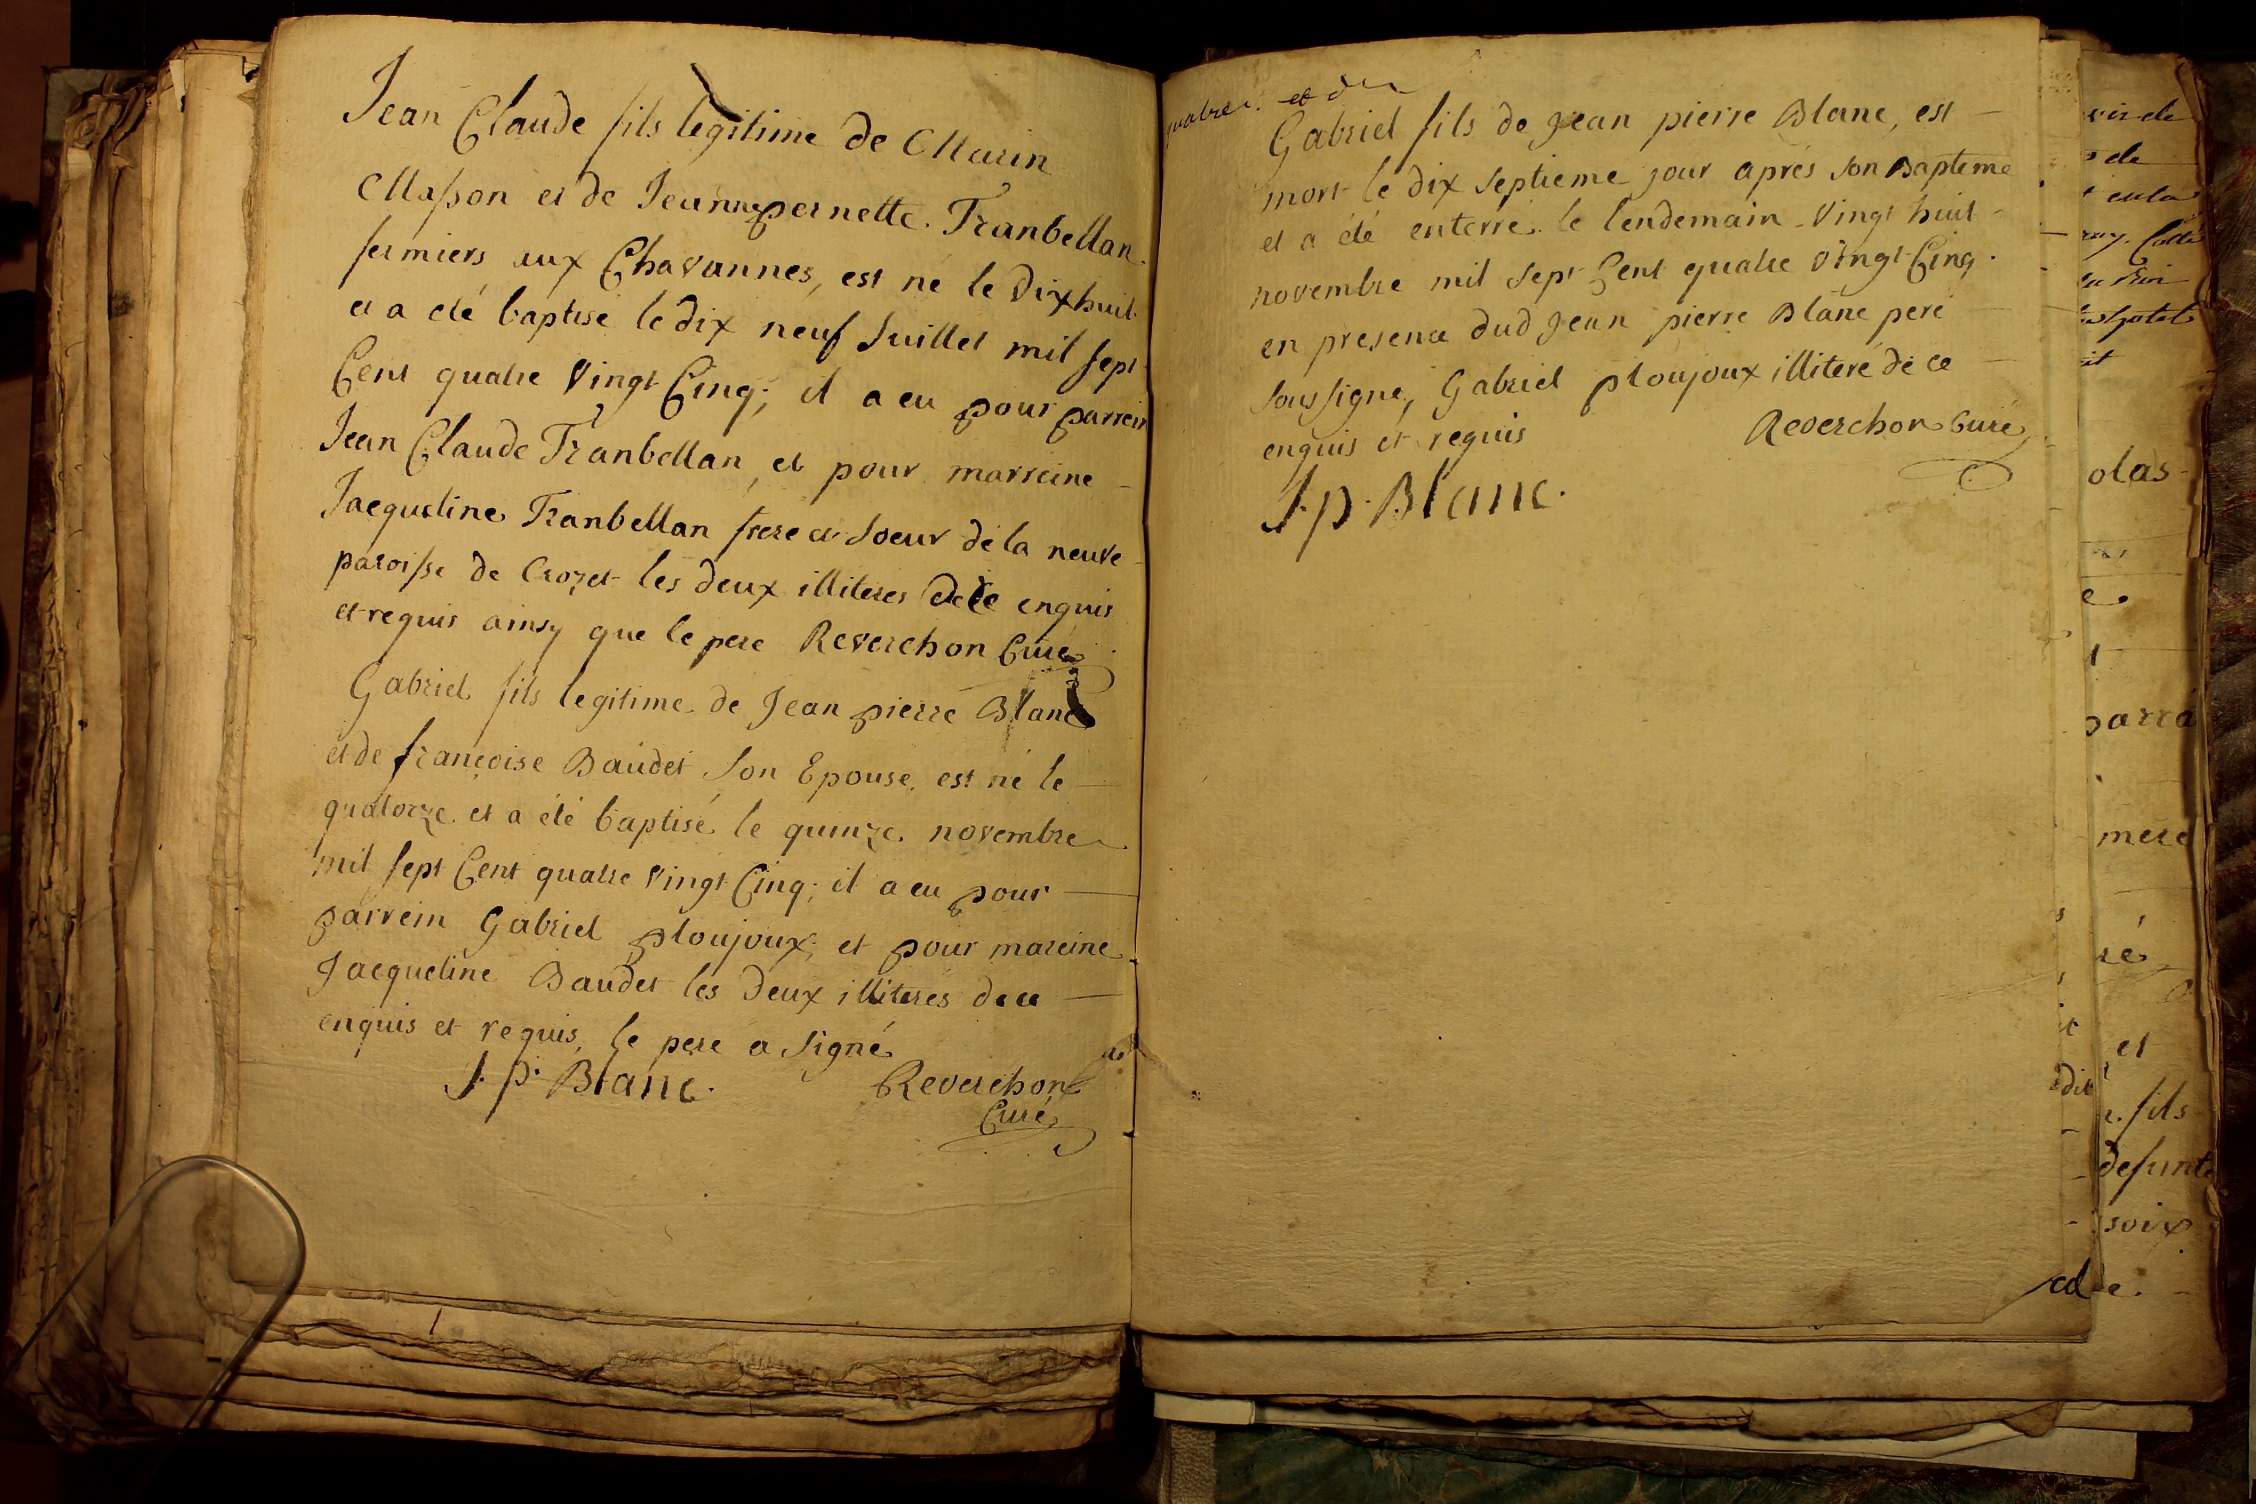 Jean Claude fils legitime de Marin
Masson et de Jeanne pernette Tranbellan
fermiers aux Chavannes, est né le dixhuit
et a eté baptisé le dix neuf Juillet mil sept
Cent quatre Vingt Cinq; il a eu pour parrein
Jean Claude Tranbellan, et pour marreine
Jacqueline Tranbellan frere et Soeur de la neuve
paroisse de Crozet les deux illiteres de ce enquis
et requis ainsy que le pere Reverchon Curé
Gabriel fils legitime de Jean pierre Blanc
et de françoise Baudet Son Epouse, est né le
quatorze et a été baptisé le quinze novembre
mil sept Cent quatre Vingt Cinq; il a eu pour
parrein Gabriel ploujoux; et pour mareine
Jacqueline Baudet les deux illiteres de ce
enquis et requis, le pere a Signé
J. p. Blanc. Reverchon
Curé
quatre et
Gabriel fils de Jean pierre Blanc, est
mort le dix Septieme jour après son Bapteme
et a été enterré le lendemain Vingt huit
novembre mil Sept Cent quatre Vingt Cinq.
en presence dud Jean pierre Blanc pere
Soussigné, Gabriel ploujoux illiteré de ce
enquis et requis Reverchon Curé
J. p. Blanc.
de
olas
parra
mere
et
fils
defunte
soix